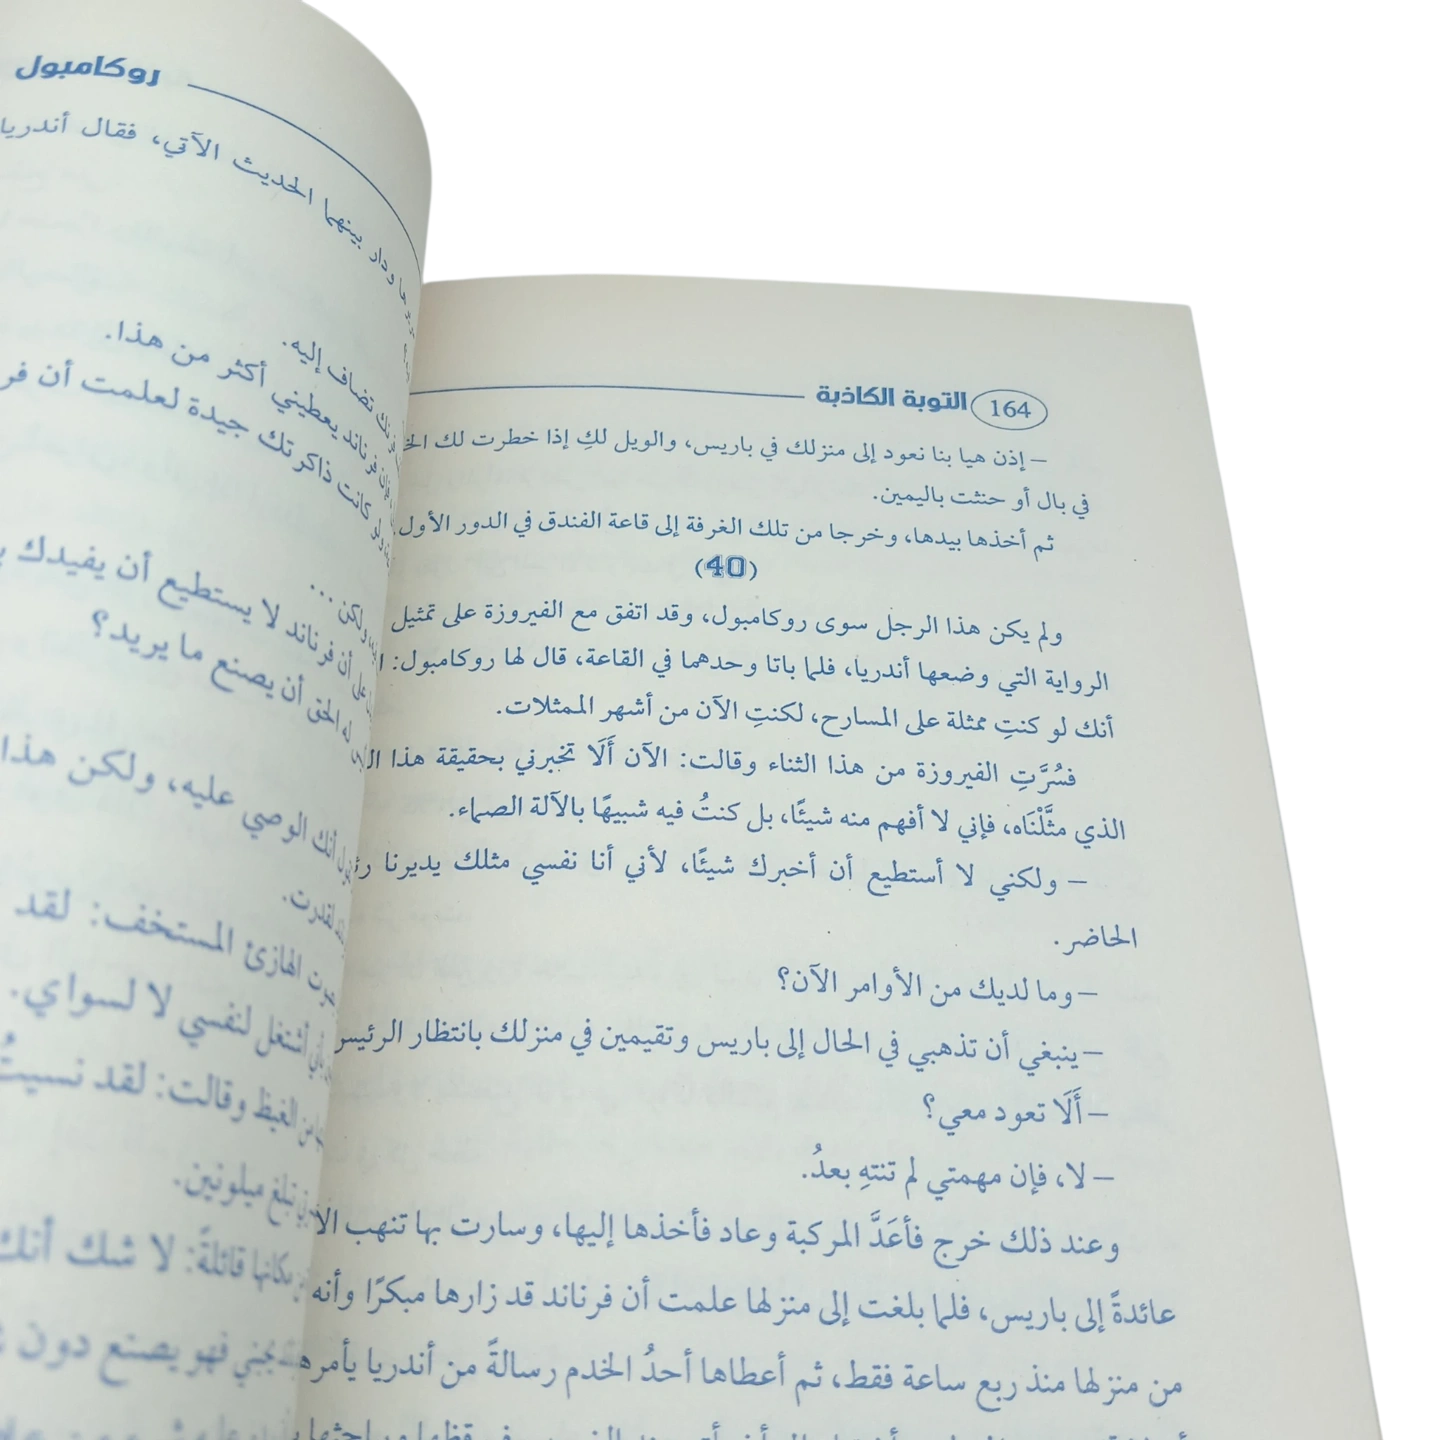 164 التوبة الكاذبة
– إذن هيا بنا نعود إلى منزلك في باريس، والويل لكِ إذا خطرت لك
في بال أو حنثت باليمين.
ثم أخذها بيدها، وخرجا من تلك الغرفة إلى قاعة الفندق في الدور الأول
(40)
ولم يكن هذا الرجل سوى روكامبول، وقد اتفق مع الفيروزة على تمثيل
الرواية التي وضعها أندريا، فلما باتا وحدهما في القاعة، قال لها روكامبول:
أنك لو كنتِ ممثلة على المسارح، لكنتِ الآن من أشهر الممثلات.
فسُرَّتِ الفيروزة من هذا الثناء وقالت: الآن أَلَا تخبرني بحقيقة هذا
الذي مثَّلْنَاه، فإني لا أفهم منه شيئًا، بل كنتُ فيه شبيهًا بالآلة الصماء.
– ولكني لا أستطيع أن أخبرك شيئًا، لأني أنا نفسي مثلك يديرنا
الحاضر.
– وما لديك من الأوامر الآن؟
– ينبغي أن تذهبي في الحال إلى باريس وتقيمين في منزلك بانتظار الرئيس
– أَلَا تعود معي؟
– لا، فإن مهمتي لم تنتهِ بعدُ.
وعند ذلك خرج فأعَدَّ المركبة وعاد فأخذها إليها، وسارت بها تنهب
عائدةً إلى باريس، فلما بلغت إلى منزلها علمت أن فرناند قد زارها مبكرًا وأنه
من منزلها منذ ربع ساعة فقط، ثم أعطاها أحدُ الخدم رسالةً من أندريا
روكامبول
ودار بينهما الحديث الآتي، فقال أندريا
فرنك تضاف إليه.
فرناند يعطيني أكثر من هذا.
لو كانت ذاكرتك جيدة لعلمت أن
ولكن ...
أن فرناند لا يستطيع أن يفيدك
له الحق أن يصنع ما يريد؟
أنك الوصي عليه، ولكن هذا
لقدرت.
الهازئ المستخف: لقد
أشتغل لنفسي لا لسواي.
من الغيظ وقالت: لقد نسيتُ
تبلغ ميلونين.
مكانها قائلةً: لا شك أنك
فهو يصنع دون